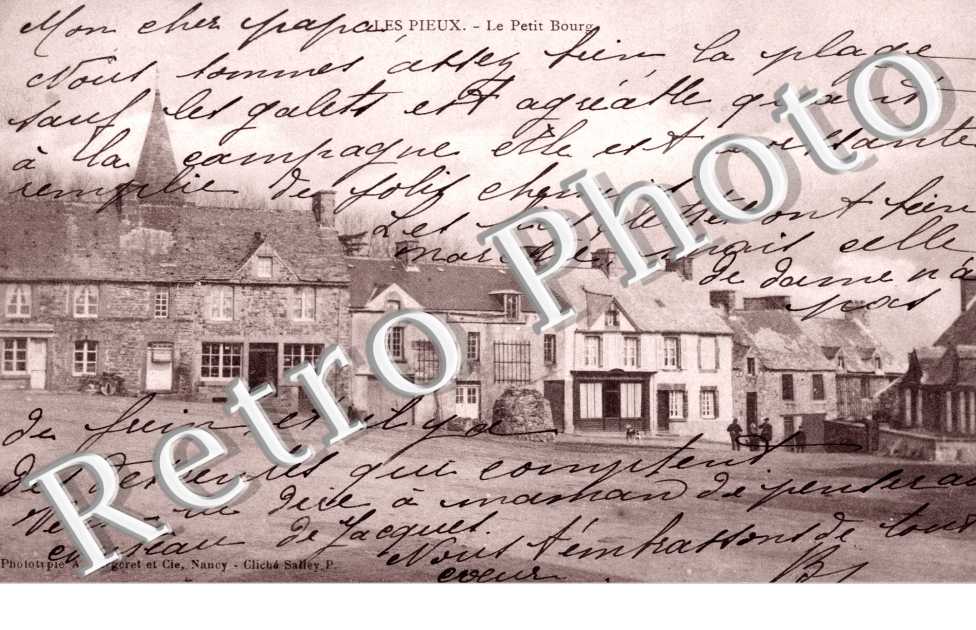 LES PIEUX. - Le Petit Bourg
Mon cher papa.
Nous sommes assez bien la plage
sauf les galets est agréable quant
à la campagne elle est ressortante
remplie de jolis chemins
Les ont bien
mais celle
de dame n'a
pas
de frein et il y a
des descentes qui comptent.
dire à maman de penser au
de Jacques.
Nous t'embrassons de tout
coeur
Phototypie A. Bergeret et Cie, Nancy - Cliché Salley P.
Retro Photo